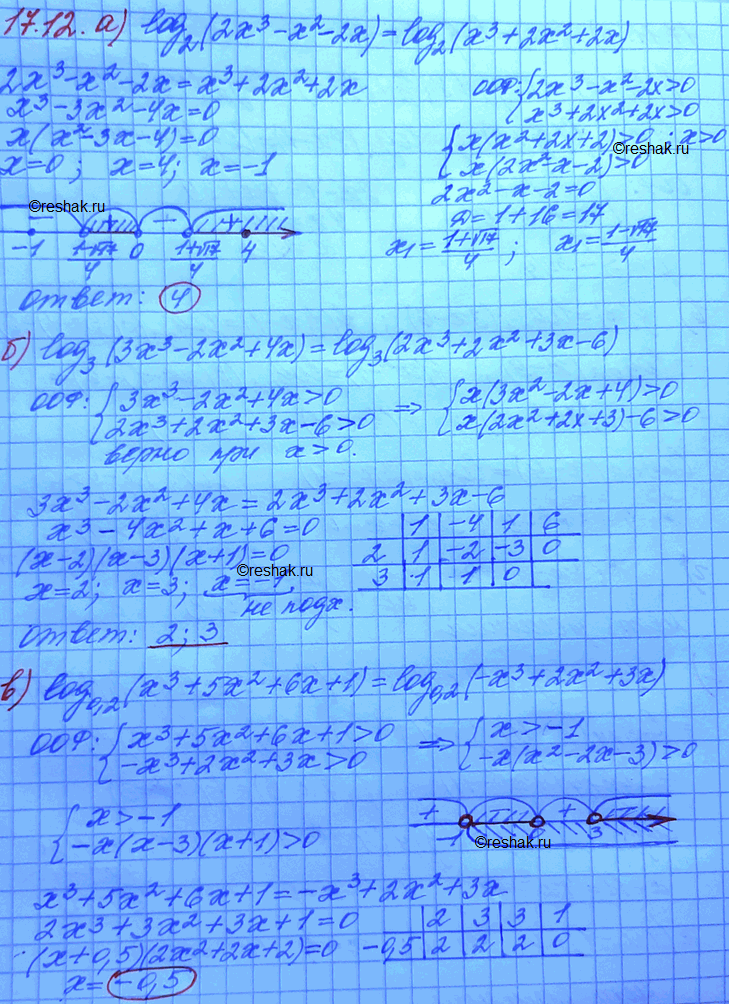 17.12. а) log₂(2x³-x²-2x)=log₂(x³+2x²+2x)
2x³-x²-2x=x³+2x²+2x
x³-3x²-4x=0
x(x²-3x-4)=0
x=0; x=4; x=-1
ООФ: {2x³-x²-2x>0
x³+2x²+2x>0
{x(x²+2x+2)>0; x>0
x(2x²-x-2)>0
©reshak.ru
2x²-x-2=0
D=1+16=17
x₁=(1+√17)/4; x₁=(1-√17)/4
©reshak.ru
- + - +
-1 (1-√17)/4 0 (1+√17)/4 4
ответ: 4
б) log₃(3x³-2x²+4x)=log₃(2x³+2x²+3x-6)
ООФ: {3x³-2x²+4x>0 ⇒ {x(3x²-2x+4)>0
2x³+2x²+3x-6>0 x(2x²+2x+3)-6>0
верно при x>0.
3x³-2x²+4x=2x³+2x²+3x-6
x³-4x²+x+6=0
(x-2)(x-3)(x+1)=0
x=2; x=3; x=-1
не подх.
©reshak.ru
1 -4 1 6
2 1 -2 -3 0
3 1 1 0
ответ: 2; 3
в) log₀,₂(x³+5x²+6x+1)=log₀,₂(-x³+2x²+3x)
ООФ: {x³+5x²+6x+1>0 ⇒ {x>-1
-x³+2x²+3x>0 -x(x²-2x-3)>0
{x>-1
-x(x-3)(x+1)>0
+ - + -
-1 0 3
©reshak.ru
x³+5x²+6x+1=-x³+2x²+3x
2x³+3x²+3x+1=0
(x+0,5)(2x²+2x+2)=0
x=-0,5
2 3 3 1
-0,5 2 2 2 0